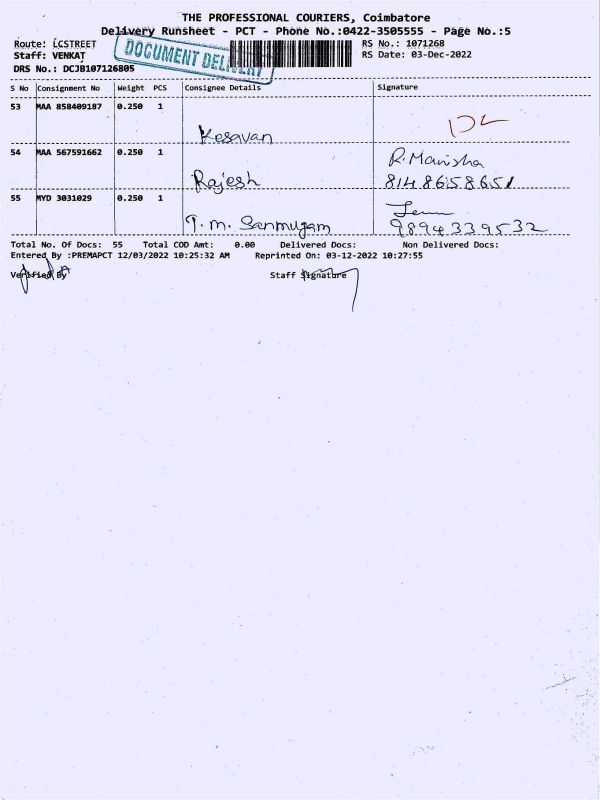 THE PROFESSIONAL COURIERS, Coimbatore
Delivery Runsheet - PCT - Phone No.:0422-3505555 - Page No.:5
Route: LCSTREET
DOCUMENT DELIVERY
RS No.: 1071268
Staff: VENKAT
RS Date: 03-Dec-2022
DRS No.: DCJB107126805
S No Consignment No Weight PCS Consignee Details Signature
53 MAA 858409187 0.250 1
Kesavan
54 MAA 567591662 0.250 1 R. Manisha
Rajesh 8148658651
55 MYD 3031029 0.250 1
T. m. Sanmugam 9894339532
Total No. Of Docs: 55 Total COD Amt: 0.00 Delivered Docs: Non Delivered Docs:
Entered By :PREMAPCT 12/03/2022 10:25:32 AM Reprinted On: 03-12-2022 10:27:55
Verified By Staff Signature